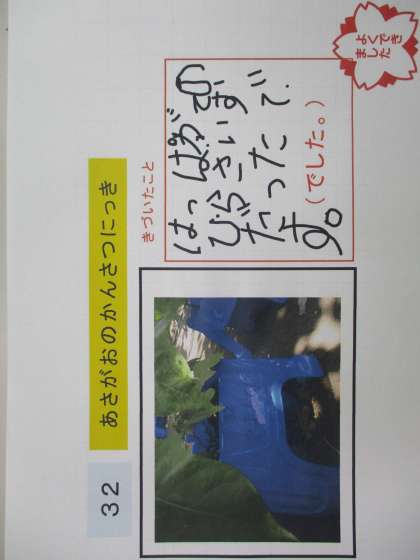 32 あさがおのかんさつにっき
きづいたこと
はっぱがての
びらさいず
だったで
す。(でした。)
よくでき
ました